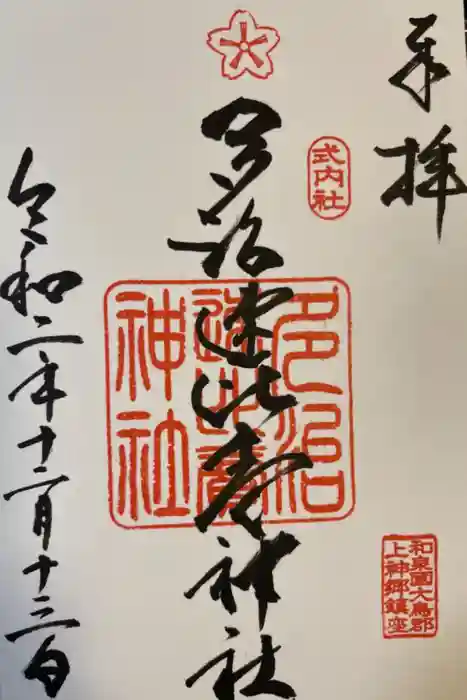 奉拝
式内社
多治速比賣神社
多治
速比賣
神社
和泉國大鳥郡
上神郷鎮座
令和二年十二月十三日